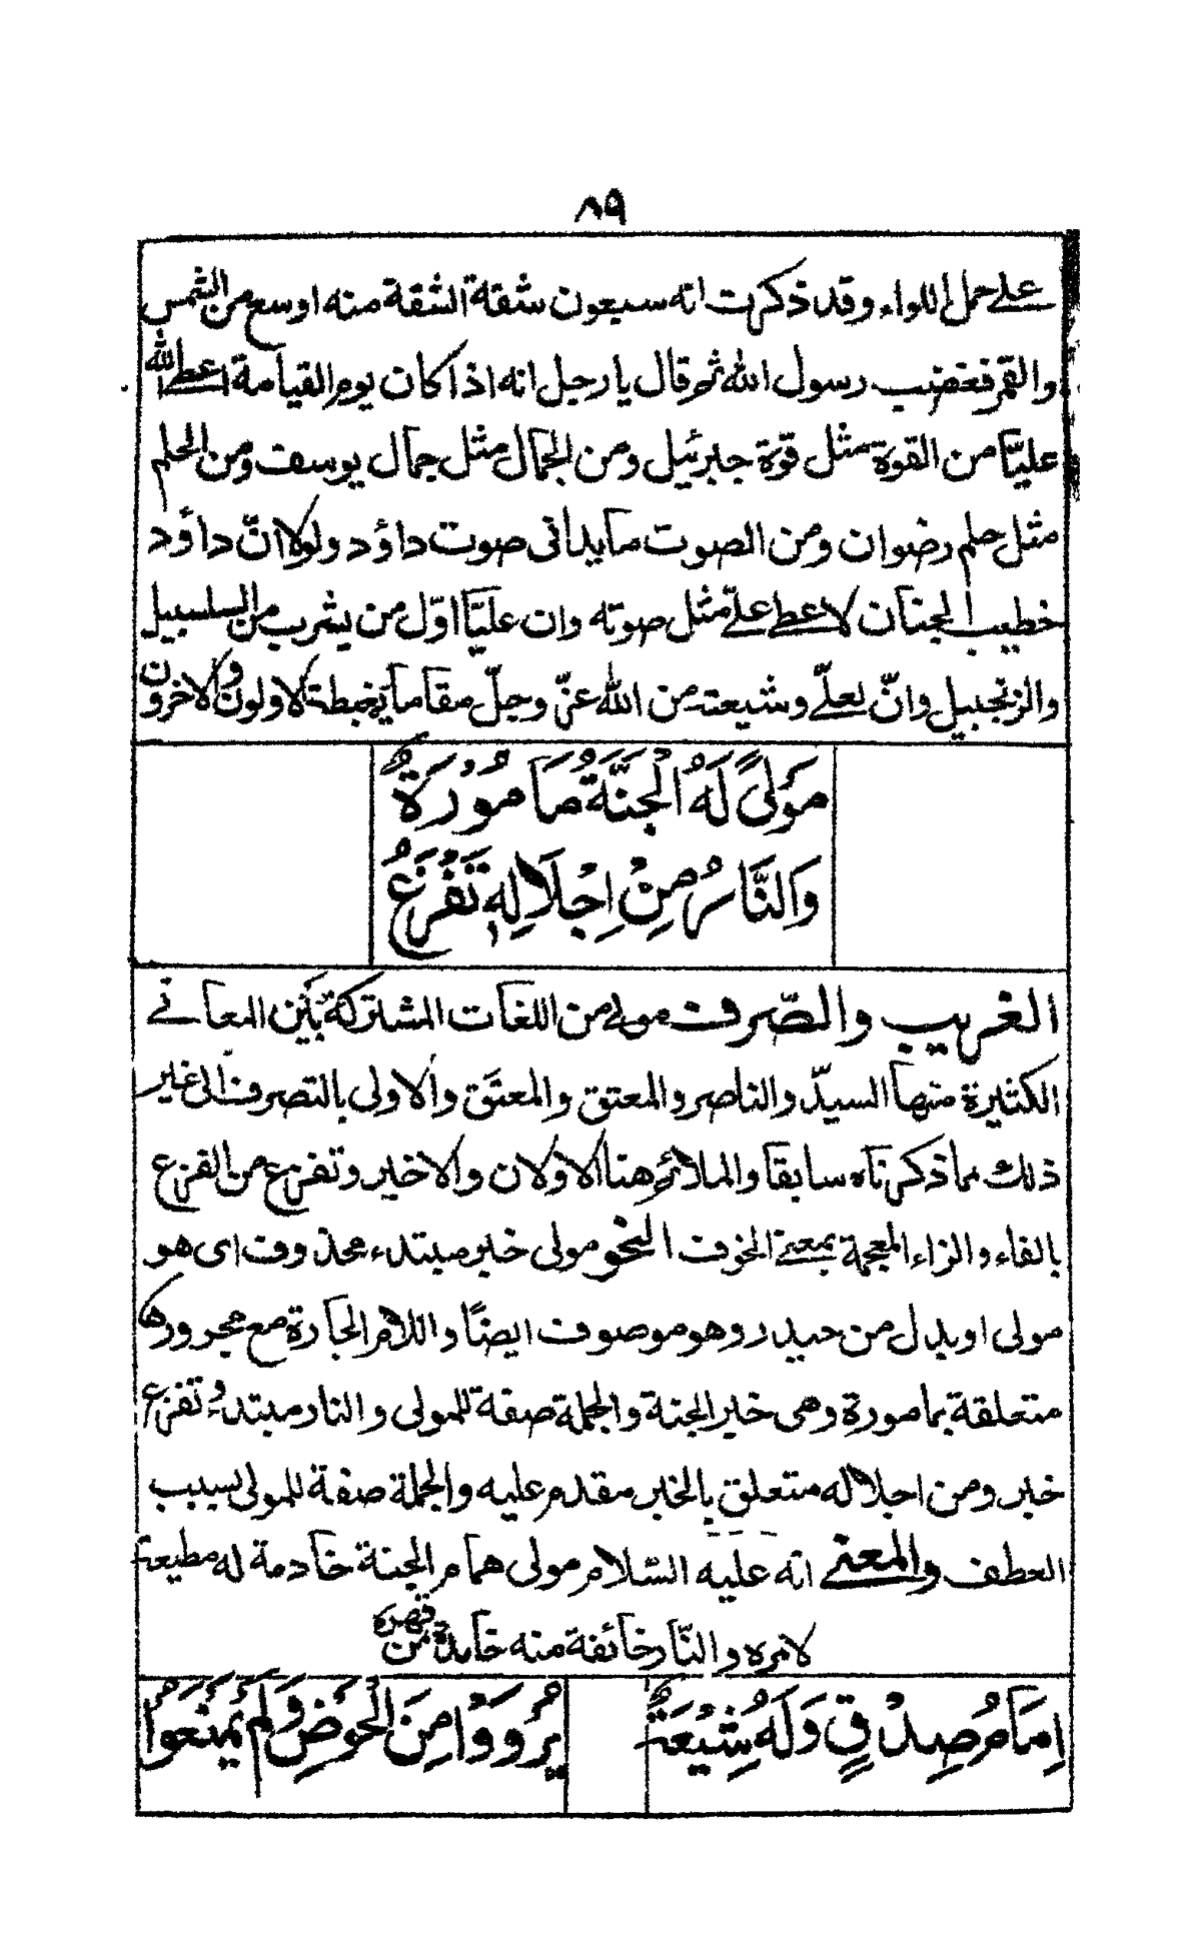 ٨٩
على حمل اللواء وقد ذكرت انه سبعون شقة الشقة منه اوسع من الشمس
والقمر فغضب رسول الله ثم قال يا رجل انه اذا كان يوم القيامة اعطى الله
عليّا من القوة مثل قوّة جبرئيل ومن الجمال مثل جمال يوسف ومن الحلم
مثل حلم رضوان ومن الصوت ما يدانى صوت داؤد ولولا انّ داؤد
خطيب الجنان لاعطى علىّ مثل صوته وان عليّا اوّل من يشرب من السلسبيل
والزنجبيل وانّ لعلىّ وشيعته من الله عزّ وجلّ مقاما يغبطه الاولون والاخرون
مَوْلىً لَهُ الْجَنَّةُ مَامُوْرَةٌ
وَالنَّارُ مِنْ اِجْلَالِهِ تَفْزَعُ
الغريب والصّرف مولى من اللغات المشتركة بين المعانے
الكثيرة منها السيدّ والناصر والمعتق والمعتَق والاولى بالتصرف الى غير
ذلك مما ذكرناه سابقا والملائم هنا الاولان والاخير وتفزع من الفزع
بالفاء والزاء المعجمة بمعنى الخوف النحو مولى خبر مبتدء محذوف اى هو
مولى او بدل من حيدر وهو موصوف ايضًا واللام الجارة مع مجرورها
متعلقة بمامورة وهى خبر الجنة والجملة صفة للمولى والنار مبتدء وتفزع
خبر ومن اجلاله متعلق بالخبر مقدم عليه والجملة صفة للمولى بسبب
العطف والمعنى انه عليه السّلام مولى همام الجنة خادمة له مطيعة
لامره والنّار خائفة منه خامدة من قهره
اِمَامُ صِدْقٍ وَلَهُ شِيْعَةٌ
يُرْوَوْا مِنَ الْحَوْضِ وَلَمْ يُمْنَعُوْا